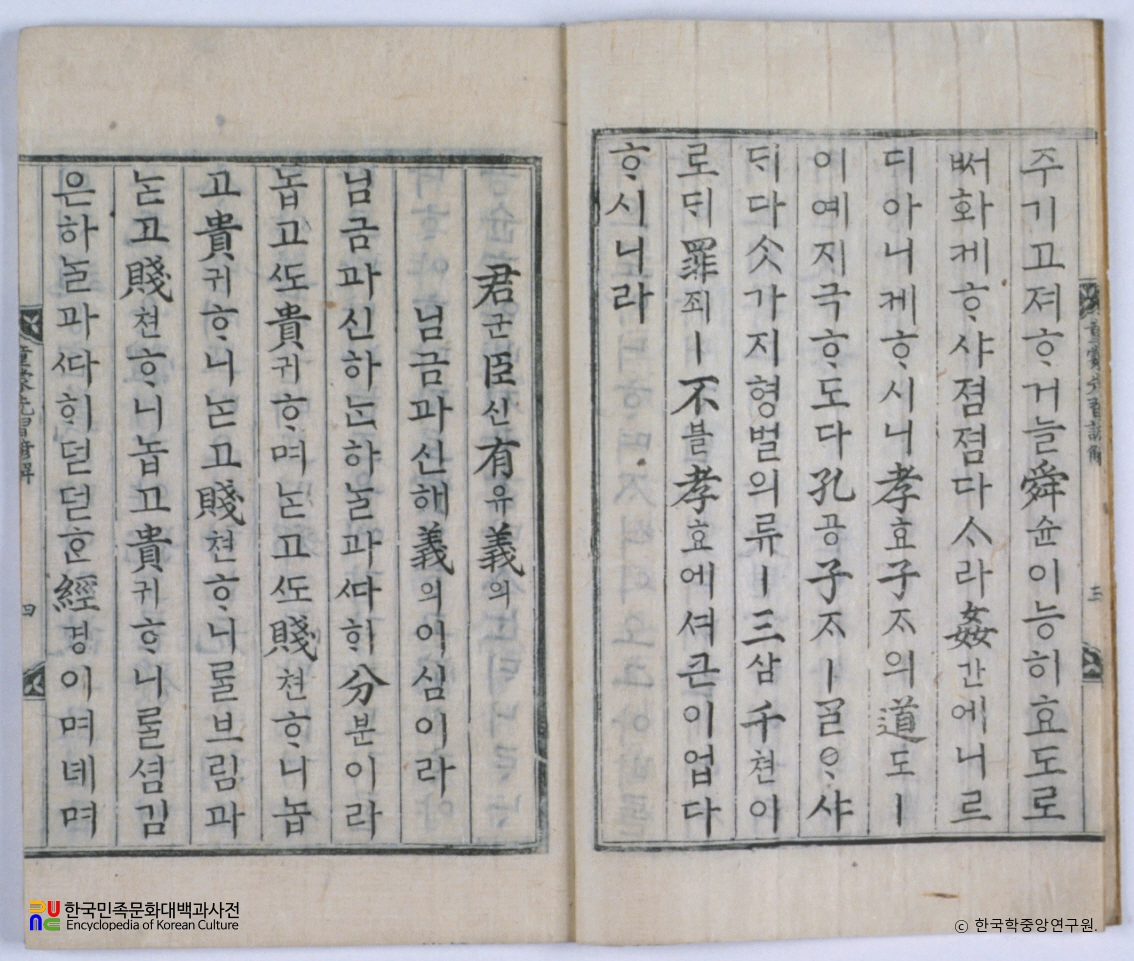 주기고져ᄒᆞ거늘舜슌이능히효도로
ᄡᅥ화케ᄒᆞ샤졈졈다ᄉᆞ라姦간에니르
디아니케ᄒᆞ시니孝효子ᄌᆞ의道도ㅣ
이예지극ᄒᆞ도다孔공子ᄌᆞㅣᄀᆞᆯᄋᆞ샤
ᄃᆡ다ᄉᆞᆺ가지형벌의류ㅣ三삼千쳔이
로ᄃᆡ罪죄ㅣ不블孝효에셔큰이업다
ᄒᆞ시니라
童蒙先習諺解
三
君군臣신有유義의
님금과신해義의이심이라
님금과신하ᄂᆞᆫ하ᄂᆞᆯ과ᄯᅡ희分분이라
놉고ᄯᅩ貴귀ᄒᆞ며ᄂᆞᆺ고ᄯᅩ賤쳔ᄒᆞ니놉
고貴귀ᄒᆞ니ᄂᆞᆺ고賤쳔ᄒᆞ니ᄅᆞᆯ브림과
ᄂᆞᆺ고賤쳔ᄒᆞ니놉고貴귀ᄒᆞ니ᄅᆞᆯ셤김
은하ᄂᆞᆯ과ᄯᅡ희덛덛ᄒᆞᆫ經경이며녜며
童蒙先習諺解
四
한국민족문화대백과사전
Encyclopedia of Korean Culture
© 한국학중앙연구원.